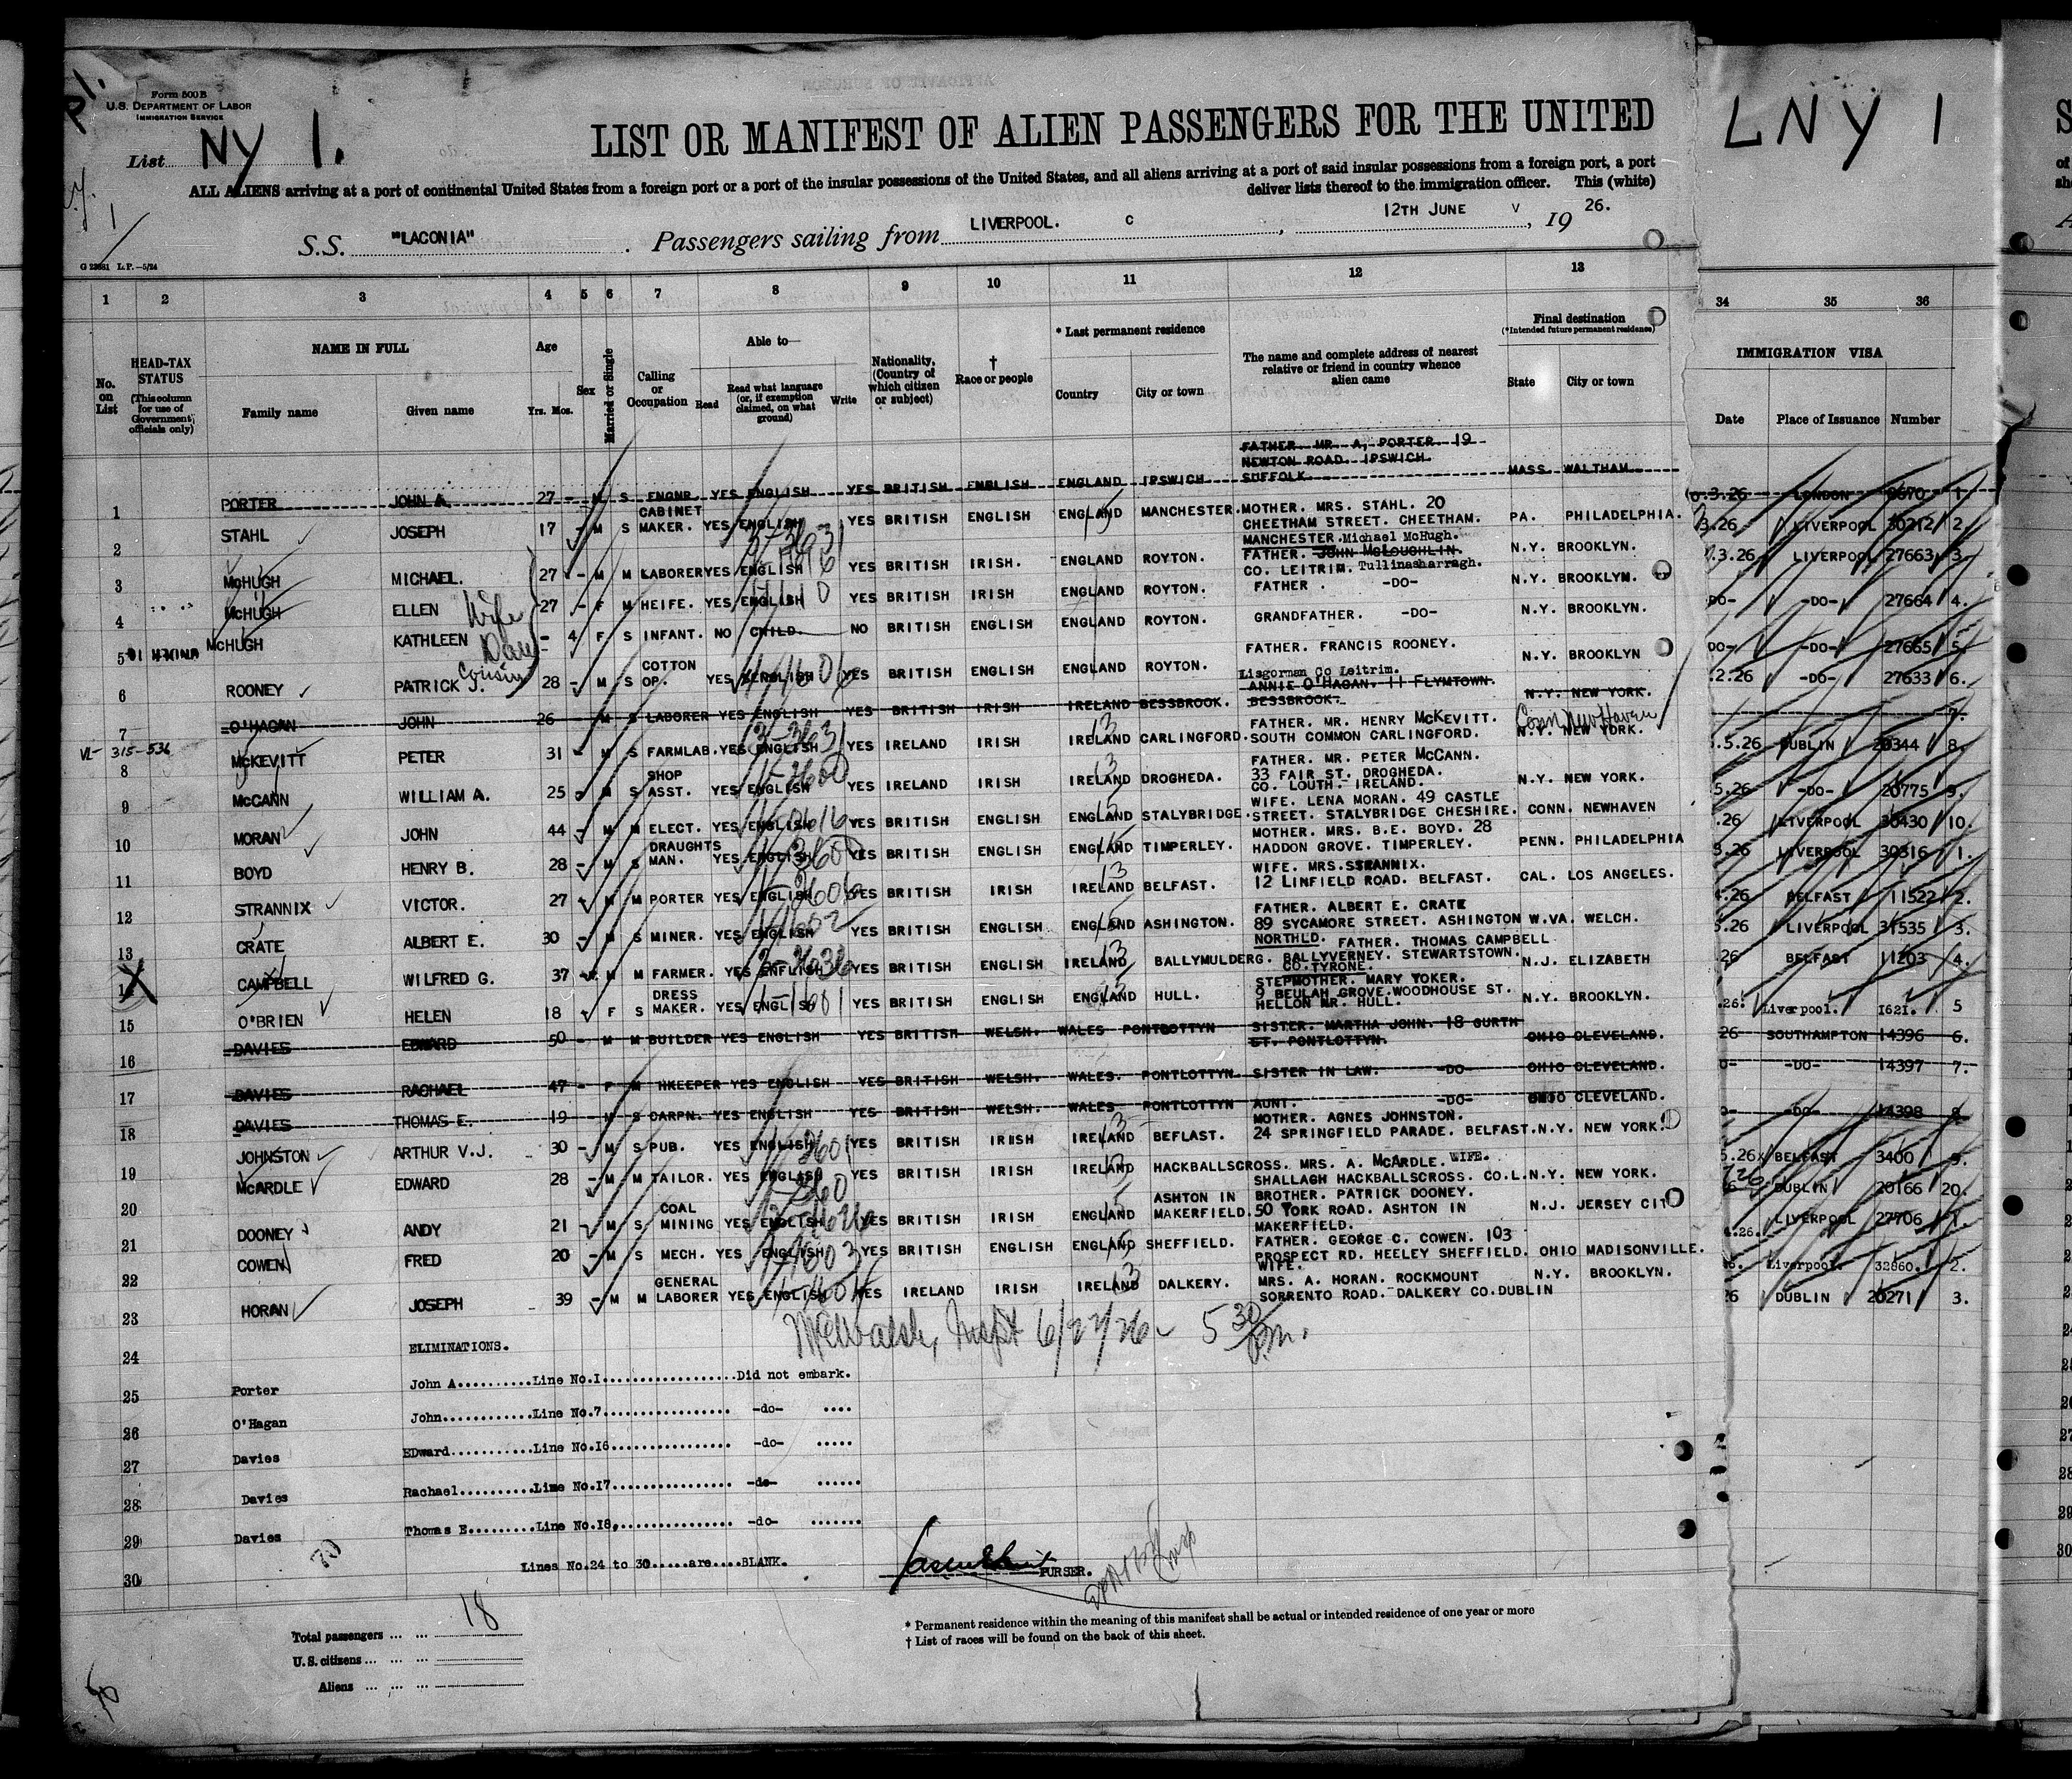 Form 500 B
U.S. DEPARTMENT OF LABOR
IMMIGRATION SERVICE
List NY 1.
LIST OR MANIFEST OF ALIEN PASSENGERS FOR THE UNITED
LNY 1
ALL ALIENS arriving at a port of continental United States from a foreign port or a port of the insular possessions of the United States, and all aliens arriving at a port of said insular possessions from a foreign port, a port
deliver lists thereof to the immigration officer. This (white)
S.S. "LACONIA" . Passengers sailing from LIVERPOOL. C , 12TH JUNE V , 19 26.
G 23881 L.P.—5/24
1 2 3 4 5 6 7 8 9 10 11 12 13 34 35 36
No. on List
HEAD-TAX STATUS (This column for use of Government officials only)
NAME IN FULL
Family name Given name
Age
Yrs. Mos.
Sex
Married or Single
Calling or Occupation
Able to—
Read Read what language (or, if exemption claimed, on what ground) Write
Nationality, (Country of which citizen or subject)
† Race or people
* Last permanent residence
Country City or town
The name and complete address of nearest relative or friend in country whence alien came
Final destination
(*Intended future permanent residence)
State City or town
IMMIGRATION VISA
Date Place of Issuance Number
1 PORTER JOHN A. 27 - M S ENGNR. YES ENGLISH YES BRITISH ENGLISH ENGLAND IPSWICH FATHER. MR. A. PORTER. 19 NEWTON ROAD. IPSWICH SUFFOLK. MASS WALTHAM 0.3.26 LONDON 8670 1.
2 STAHL JOSEPH 17 - M S CABINET MAKER. YES ENGLISH YES BRITISH ENGLISH ENGLAND MANCHESTER. MOTHER. MRS. STAHL. 20 CHEETHAM STREET. CHEETHAM. MANCHESTER. PA. PHILADELPHIA. 3.26 LIVERPOOL 30212 2.
3 McHUGH MICHAEL. 27 - M M LABORER YES ENGLISH YES BRITISH IRISH. ENGLAND ROYTON. Michael McHugh. FATHER. JOHN McLOUGHLIN. CO. LEITRIM. Tullinasharragh. N.Y. BROOKLYN. 7.3.26 LIVERPOOL 27663 3.
4 McHUGH ELLEN Wife 27 - F M HEIFE. YES ENGLISH YES BRITISH IRISH ENGLAND ROYTON. FATHER . -DO- N.Y. BROOKLYN. DO- -DO- 27664 4.
5 McHUGH KATHLEEN Dau - 4 F S INFANT. NO CHILD. NO BRITISH ENGLISH ENGLAND ROYTON. GRANDFATHER. -DO- N.Y. BROOKLYN. DO- -DO- 27665 5.
6 ROONEY PATRICK J. Cousin 28 - M S COTTON OP. YES ENGLISH YES BRITISH ENGLISH ENGLAND ROYTON. FATHER. FRANCIS ROONEY. Lisgorman Co Leitrim. N.Y. BROOKLYN 2.26 -DO- 27633 6.
7 O'HAGAN JOHN 26 M S LABORER YES ENGLISH YES BRITISH IRISH IRELAND BESSBROOK. ANNIE O'HAGAN. 11 FLYMTOWN. BESSBROOK. N.Y. NEW YORK. 7.
VL- 315-536
8 McKEVITT PETER 31 - M S FARMLAB. YES ENGLISH YES IRELAND IRISH IRELAND CARLINGFORD. FATHER. MR. HENRY McKEVITT. SOUTH COMMON CARLINGFORD. N.Y. NEW YORK. Conn New Haven .5.26 DUBLIN 20344 8.
9 McCANN WILLIAM A. 25 - M S SHOP ASST. YES ENGLISH YES IRELAND IRISH IRELAND DROGHEDA. FATHER. MR. PETER McCANN. 33 FAIR ST. DROGHEDA. CO. LOUTH. IRELAND. N.Y. NEW YORK. 5.26 -DO- 20775 9.
10 MORAN JOHN 44 - M M ELECT. YES ENGLISH YES BRITISH ENGLISH ENGLAND STALYBRIDGE. WIFE. LENA MORAN. 49 CASTLE STREET. STALYBRIDGE CHESHIRE. CONN. NEWHAVEN .26 LIVERPOOL 30430 10.
11 BOYD HENRY B. 28 - M S DRAUGHTS MAN. YES ENGLISH YES BRITISH ENGLISH ENGLAND TIMPERLEY. MOTHER. MRS. B.E. BOYD. 28 HADDON GROVE. TIMPERLEY. PENN. PHILADELPHIA 3.26 LIVERPOOL 30316 1.
12 STRANNIX VICTOR. 27 - M M PORTER YES ENGLISH YES BRITISH IRISH IRELAND BELFAST. WIFE. MRS. STRANNIX. 12 LINFIELD ROAD. BELFAST. CAL. LOS ANGELES. 4.26 BELFAST 11522 2.
13 CRATE ALBERT E. 30 - M S MINER. YES ENGLISH YES BRITISH ENGLISH ENGLAND ASHINGTON. FATHER. ALBERT E. CRATE 89 SYCAMORE STREET. ASHINGTON NORTHLD. W.VA. WELCH. 3.26 LIVERPOOL 31535 3.
14 CAMPBELL WILFRED G. 37 - M M FARMER. YES ENFLISH YES BRITISH ENGLISH IRELAND BALLYMULDERG. FATHER. THOMAS CAMPBELL BALLYVERNEY. STEWARTSTOWN. CO.TYRONE. N.J. ELIZABETH 26 BELFAST 11203 4.
15 O'BRIEN HELEN 18 F S DRESS MAKER. YES ENGLISH YES BRITISH ENGLISH ENGLAND HULL. STEPMOTHER. MARY YOKER. 9 BEULAH GROVE WOODHOUSE ST. HELLON NR. HULL. N.Y. BROOKLYN. .26. Liverpool. 1621. 5
16 DAVIES EDWARD 50 - M M BUILDER YES ENGLISH YES BRITISH WELSH. WALES PONTLOTTYN SISTER. MARTHA JOHN. 18 GURTH ST. PONTLOTTYN. OHIO CLEVELAND. 26 SOUTHAMPTON 14396 6.
17 DAVIES RACHAEL 47 - F M HKEEPER YES ENGLISH YES BRITISH WELSH. WALES. PONTLOTTYN. SISTER IN LAW. -DO- OHIO CLEVELAND. -DO- 14397 7.
18 DAVIES THOMAS E. 19 - M S CARPN. YES ENGLISH YES BRITISH WELSH. WALES PONTLOTTYN AUNT. -DO- OHIO CLEVELAND. -DO- 14398 8
19 JOHNSTON ARTHUR V.J. 30 - M S PUB. YES ENGLISH YES BRITISH IRISH IRELAND BEFLAST. MOTHER. AGNES JOHNSTON. 24 SPRINGFIELD PARADE. BELFAST. N.Y. NEW YORK. 5.26 BELFAST 3400 9.
20 McARDLE EDWARD 28 - M M TAILOR. YES ENGLISH YES BRITISH IRISH IRELAND HACKBALLSCROSS. MRS. A. McARDLE. WIFE. SHALLAGH HACKBALLSCROSS. CO.L. N.Y. NEW YORK. DUBLIN 20166 20.
21 DOONEY ANDY 21 - M S COAL MINING YES ENGLISH YES BRITISH IRISH ENGLAND ASHTON IN MAKERFIELD. BROTHER. PATRICK DOONEY. 50 YORK ROAD. ASHTON IN MAKERFIELD. N.J. JERSEY CIT 4.26. LIVERPOOL 27706 1.
22 COWEN FRED 20 - M S MECH. YES ENGLISH YES BRITISH ENGLISH ENGLAND SHEFFIELD. FATHER. GEORGE C. COWEN. 103 PROSPECT RD. HEELEY SHEFFIELD. OHIO MADISONVILLE. Liverpool. 32860. 2.
23 HORAN JOSEPH 39 - M M GENERAL LABORER YES ENGLISH YES IRELAND IRISH IRELAND DALKERY. WIFE. MRS. A. HORAN. ROCKMOUNT SORRENTO ROAD. DALKERY CO.DUBLIN N.Y. BROOKLYN. 26 DUBLIN 20271 3.
Inspt 6/22/26 5 30 p.m.
24 ELIMINATIONS.
25 Porter John A..........Line No.I..................Did not embark.
26 O'Hagan John............Line No.7................ -do- ....
27 Davies EDward...........Line No.I6................ -do- .....
28 Davies Rachael..........Line No.I7................ -do- ......
29 Davies Thomas E.........Line No.I8................ -do- .......
30 Lines No.24 to 30.....are....BLANK.
70
PURSER.
* Permanent residence within the meaning of this manifest shall be actual or intended residence of one year or more
† List of races will be found on the back of this sheet.
Total passengers ... ... 18
U.S. citizens ... ... ...
Aliens ... ... ...